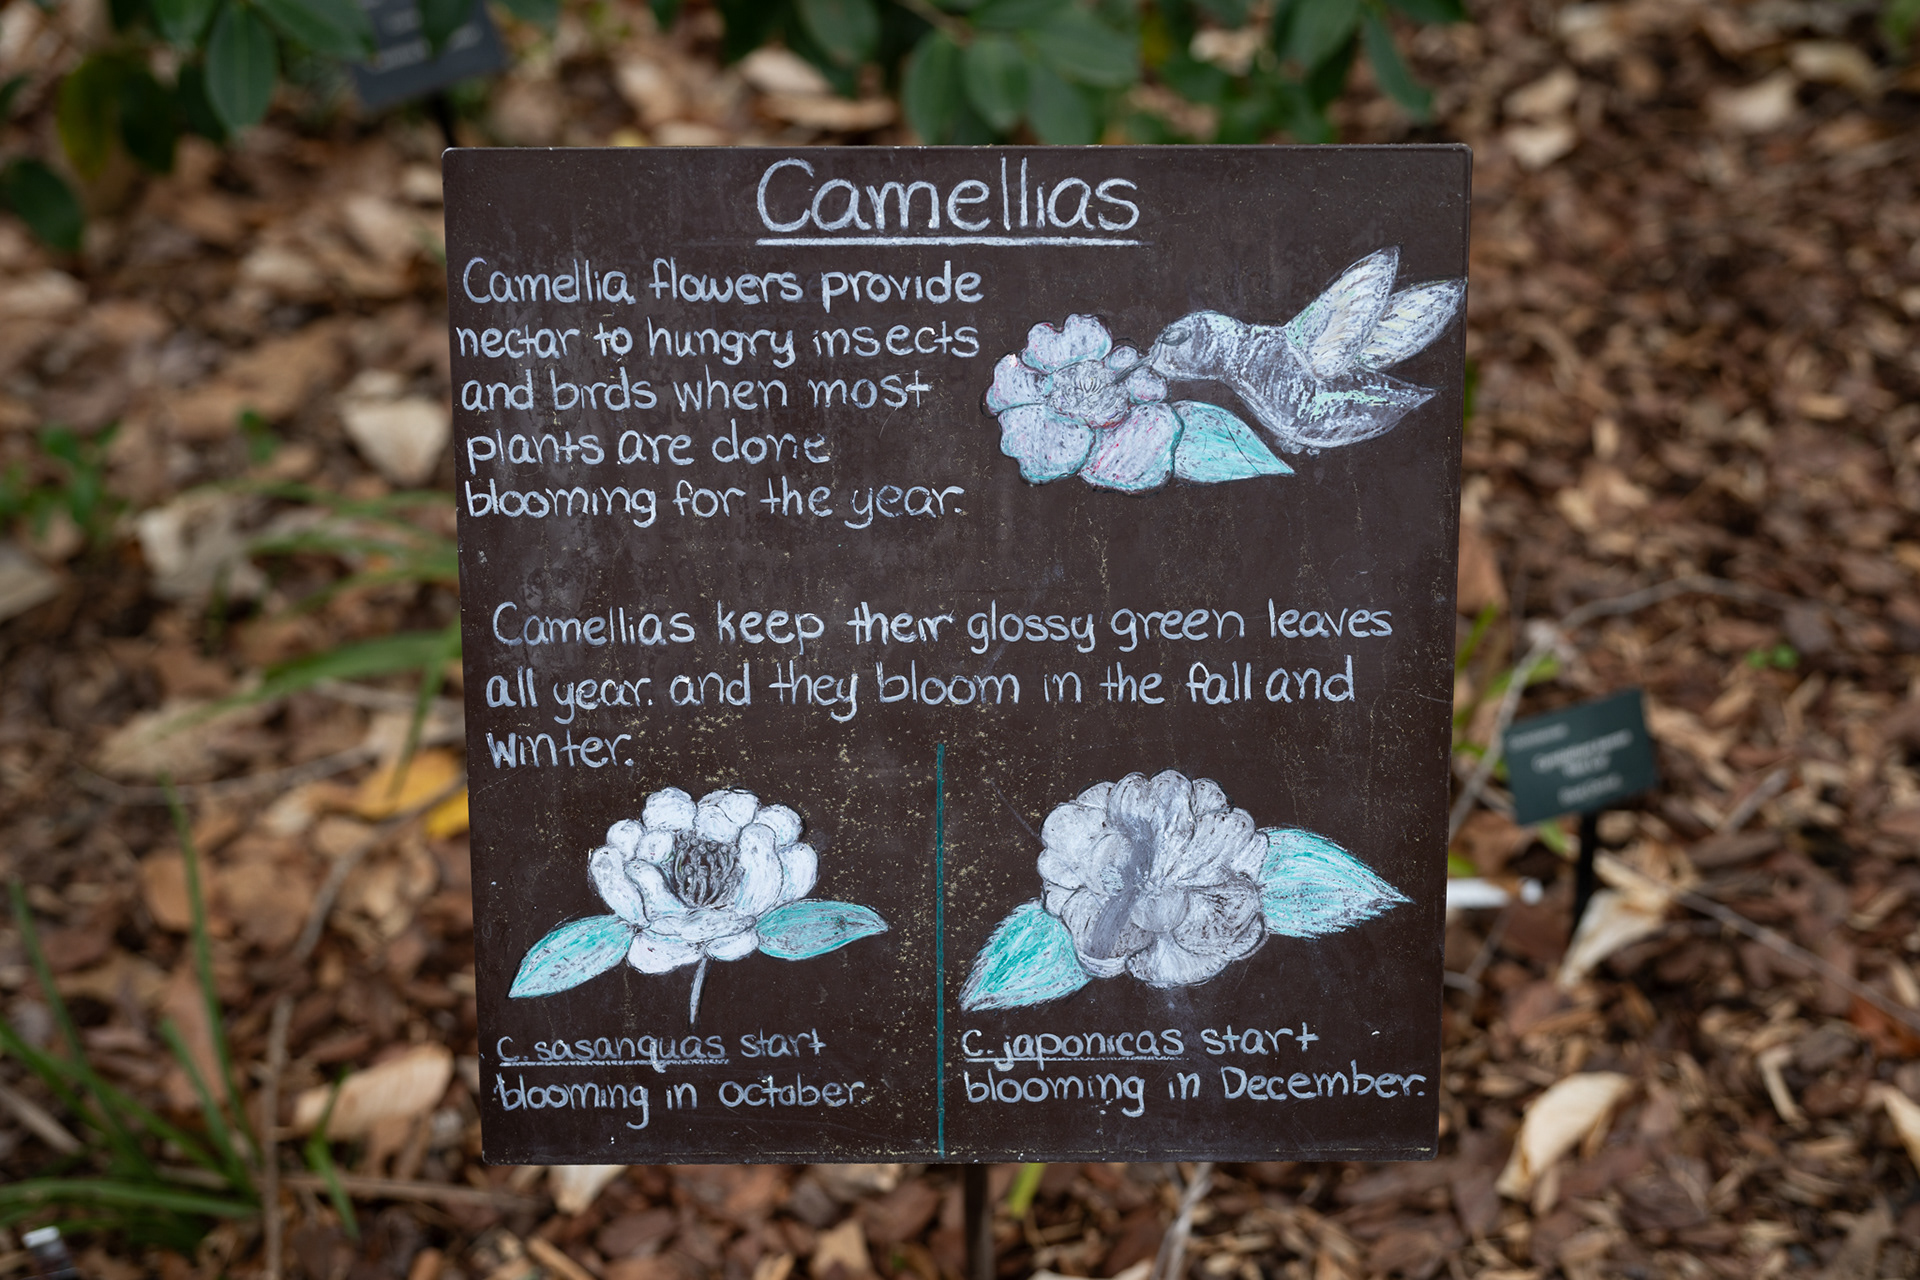 Camellias
Camellia flowers provide
nectar to hungry insects
and birds when most
plants are done
blooming for the year.
Camellias keep their glossy green leaves
all year. and they bloom in the fall and
winter.
C. sasanquas start
blooming in october.
C. japonicas start
blooming in December.